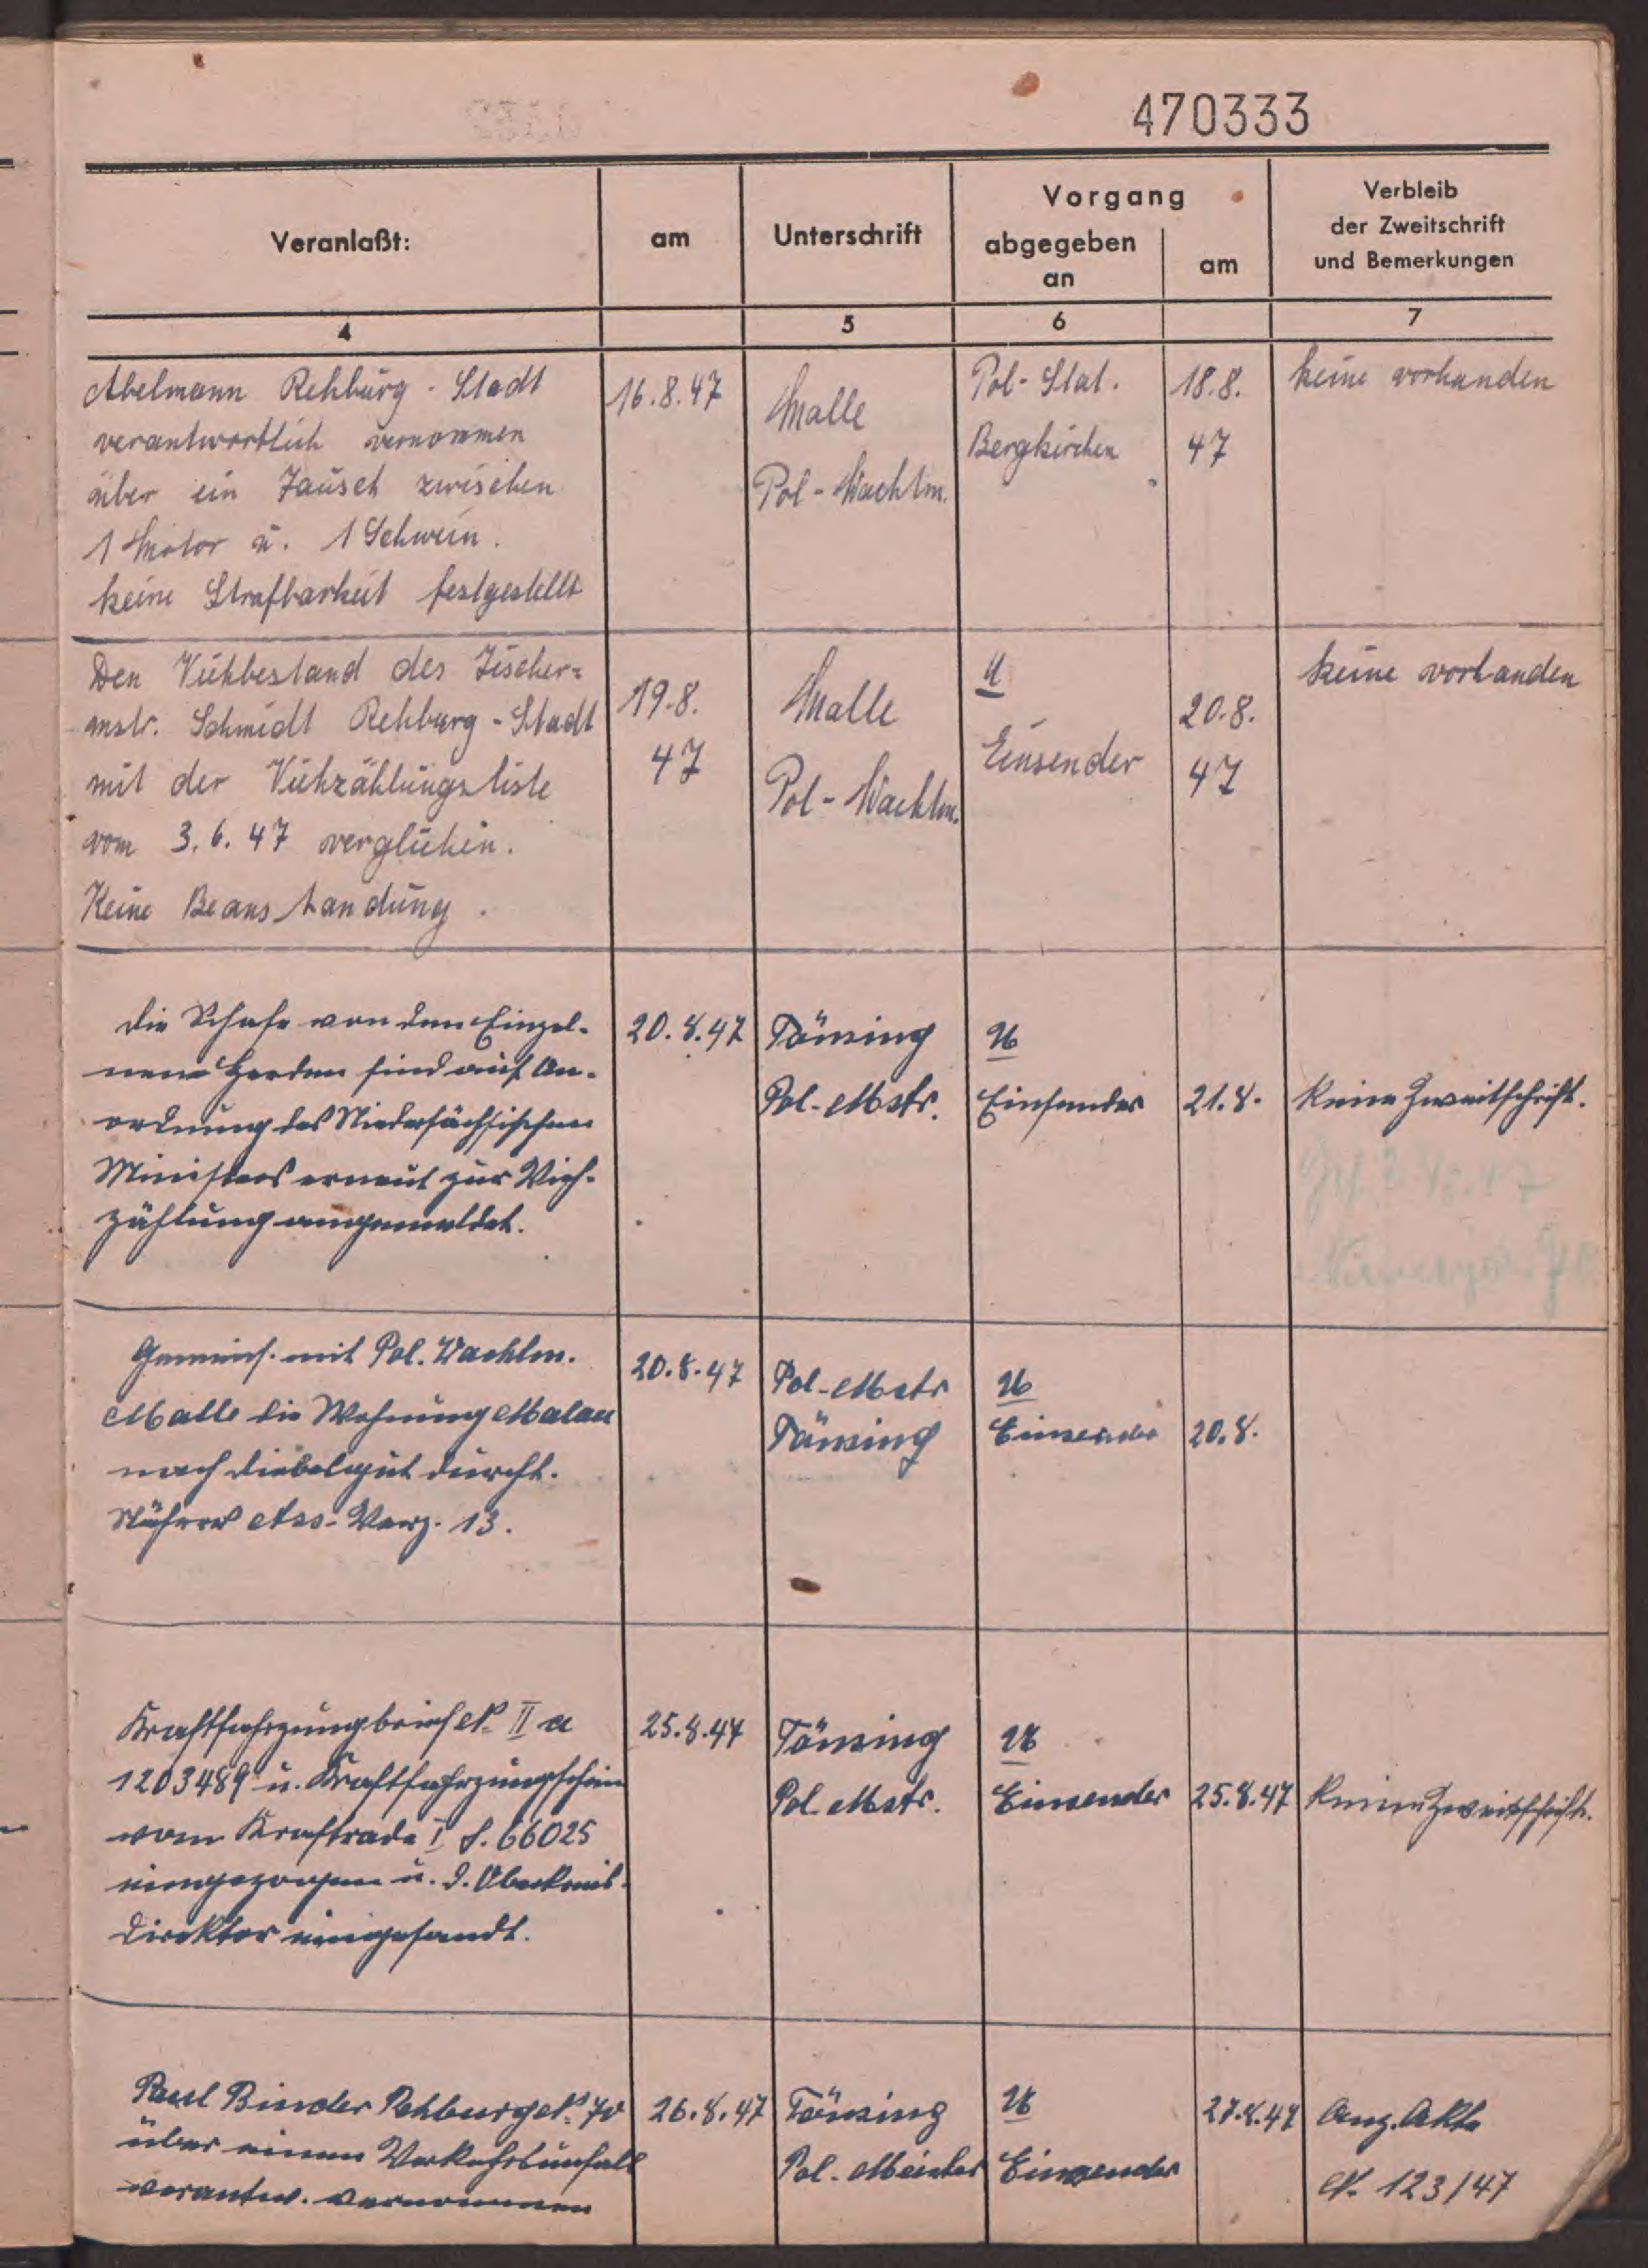 470333
Veranlaßt:
am
Unterschrift
Vorgang
abgegeben
an
am
Verbleib
der Zweitschrift
und Bemerkungen
4
5
6
7
Abelmann Rehburg - Stadt
verantwortlich vernommen
über ein Tausch zwischen
1 Motor u. 1 Schwein.
keine Strafbarkeit festgestellt
16.8.47
Malle
Pol-Wachtm.
Pol-Stat.
Bergkirchen
18.8.
47
keine vorhanden
Den Viehbestand des Tischer=
mstr. Schmidt Rehburg - Stadt
mit der Viehzählungsliste
vom 3.6.47 verglichen.
Keine Beanstandung.
19.8.
47
Malle
Pol-Wachtm.
U
Einsender
20.8.
47
keine vorhanden
Die Schafe von den Einzel-
nen Herden sind auf An-
ordnung des Niedersächsischen
Ministers erneut zur Vieh-
zählung angemeldet.
20.8.47
Tönsing
Pol-Mstr.
U
Einsender
21.8.
Keine Zweitschrift.
Gemeins. mit Pol. Wachtm.
Malle die Wohnung
nach Diebesgut durchs.
Näheres Ass-Verz. 13.
20.8.47
Pol-Mstr
Tönsing
U
Einsender
20.8.
Kraftfahrzeugbrief N° II a
1203489 u. Kraftfahrzeugschein
vom Kraftrade I S. 66025
eingezogen u. d. Oberkreis-
direktor eingesandt.
25.8.47
Tönsing
Pol. Mstr.
U
Einsender
25.8.47
Keine Zweitschrift.
Paul Binder Rehburg N° 70
über einen Verkehrsunfall
verantw. vernommen
26.8.47
Tönsing
Pol. Meister
U
Einsender
27.8.47
Anz. Akte
N. 123/47